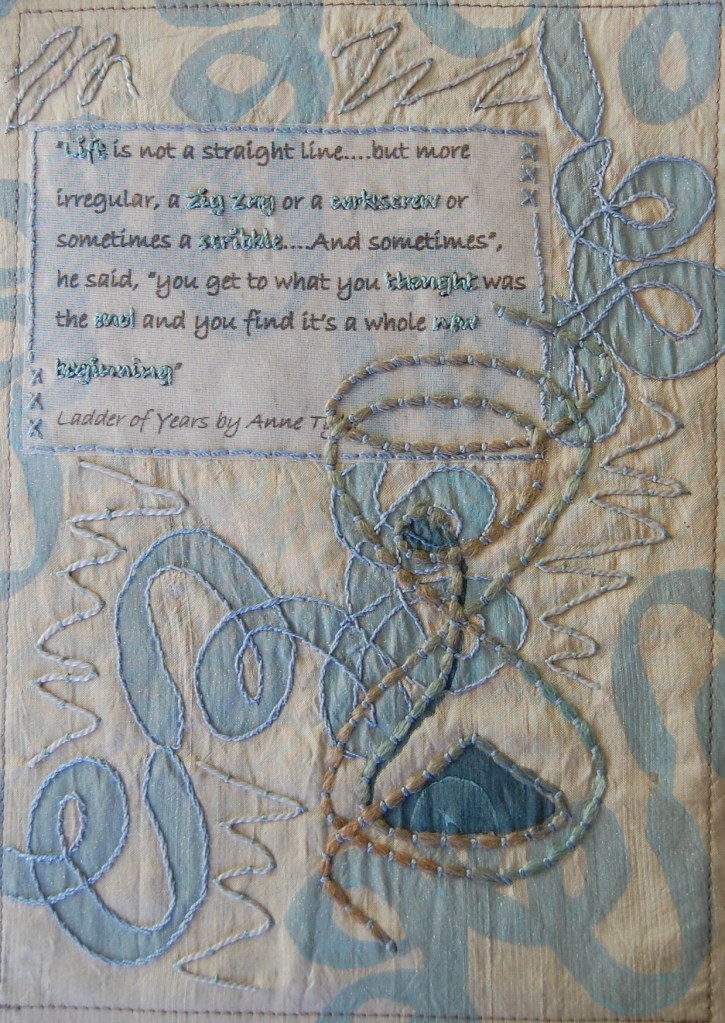 "Life is not a straight line....but more
irregular, a zig zag or a corkscrew or
sometimes a scribble....And sometimes",
he said, "you get to what you thought was
the end and you find it's a whole new
beginning"
Ladder of Years by Anne Ty